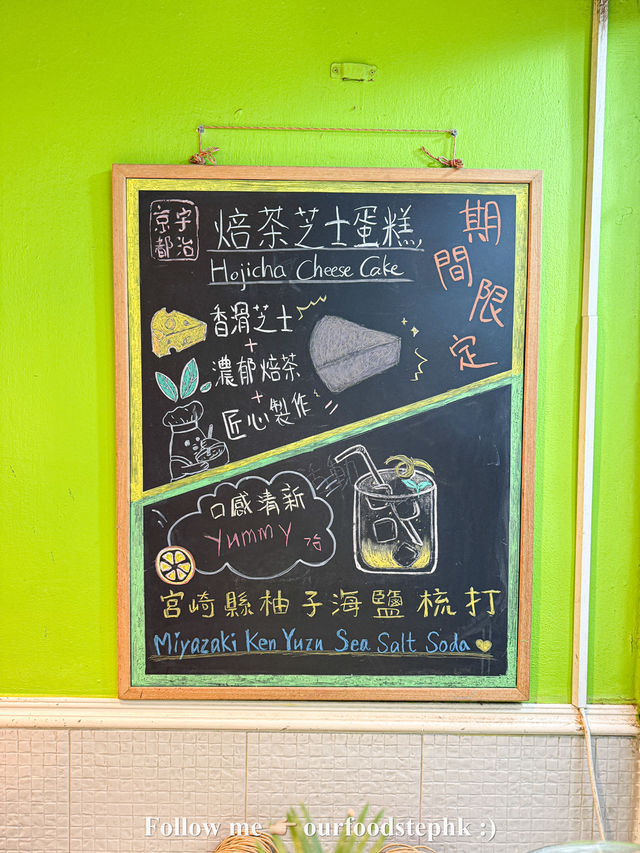 宇治
京都
焙茶芝士蛋糕
Hojicha Cheese Cake
期間限定
香滑芝士
+
濃郁焙茶
+
匠心製作
口感清新
Yummy
宮崎縣柚子海鹽梳打
Miyazaki Ken Yuzu Sea Salt Soda
Follow me 👉🏻 ourfoodstephk :)